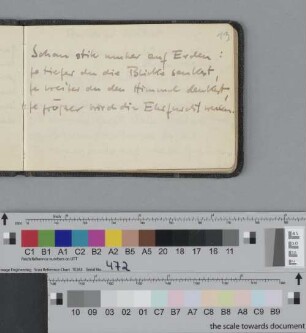 19
Schau still umher auf Erden:
je tiefer du die Blicke senkest,
je weiter du den Himmel denkest,
je größer wird die Ehrfurcht
C1 B1 A1 C2 B2 A2 B5 A5 20 18 17 16 11
472
10 09 03 02 01 C7 B7 A7 C8 B8 A8 C9 B9
the scale towards document